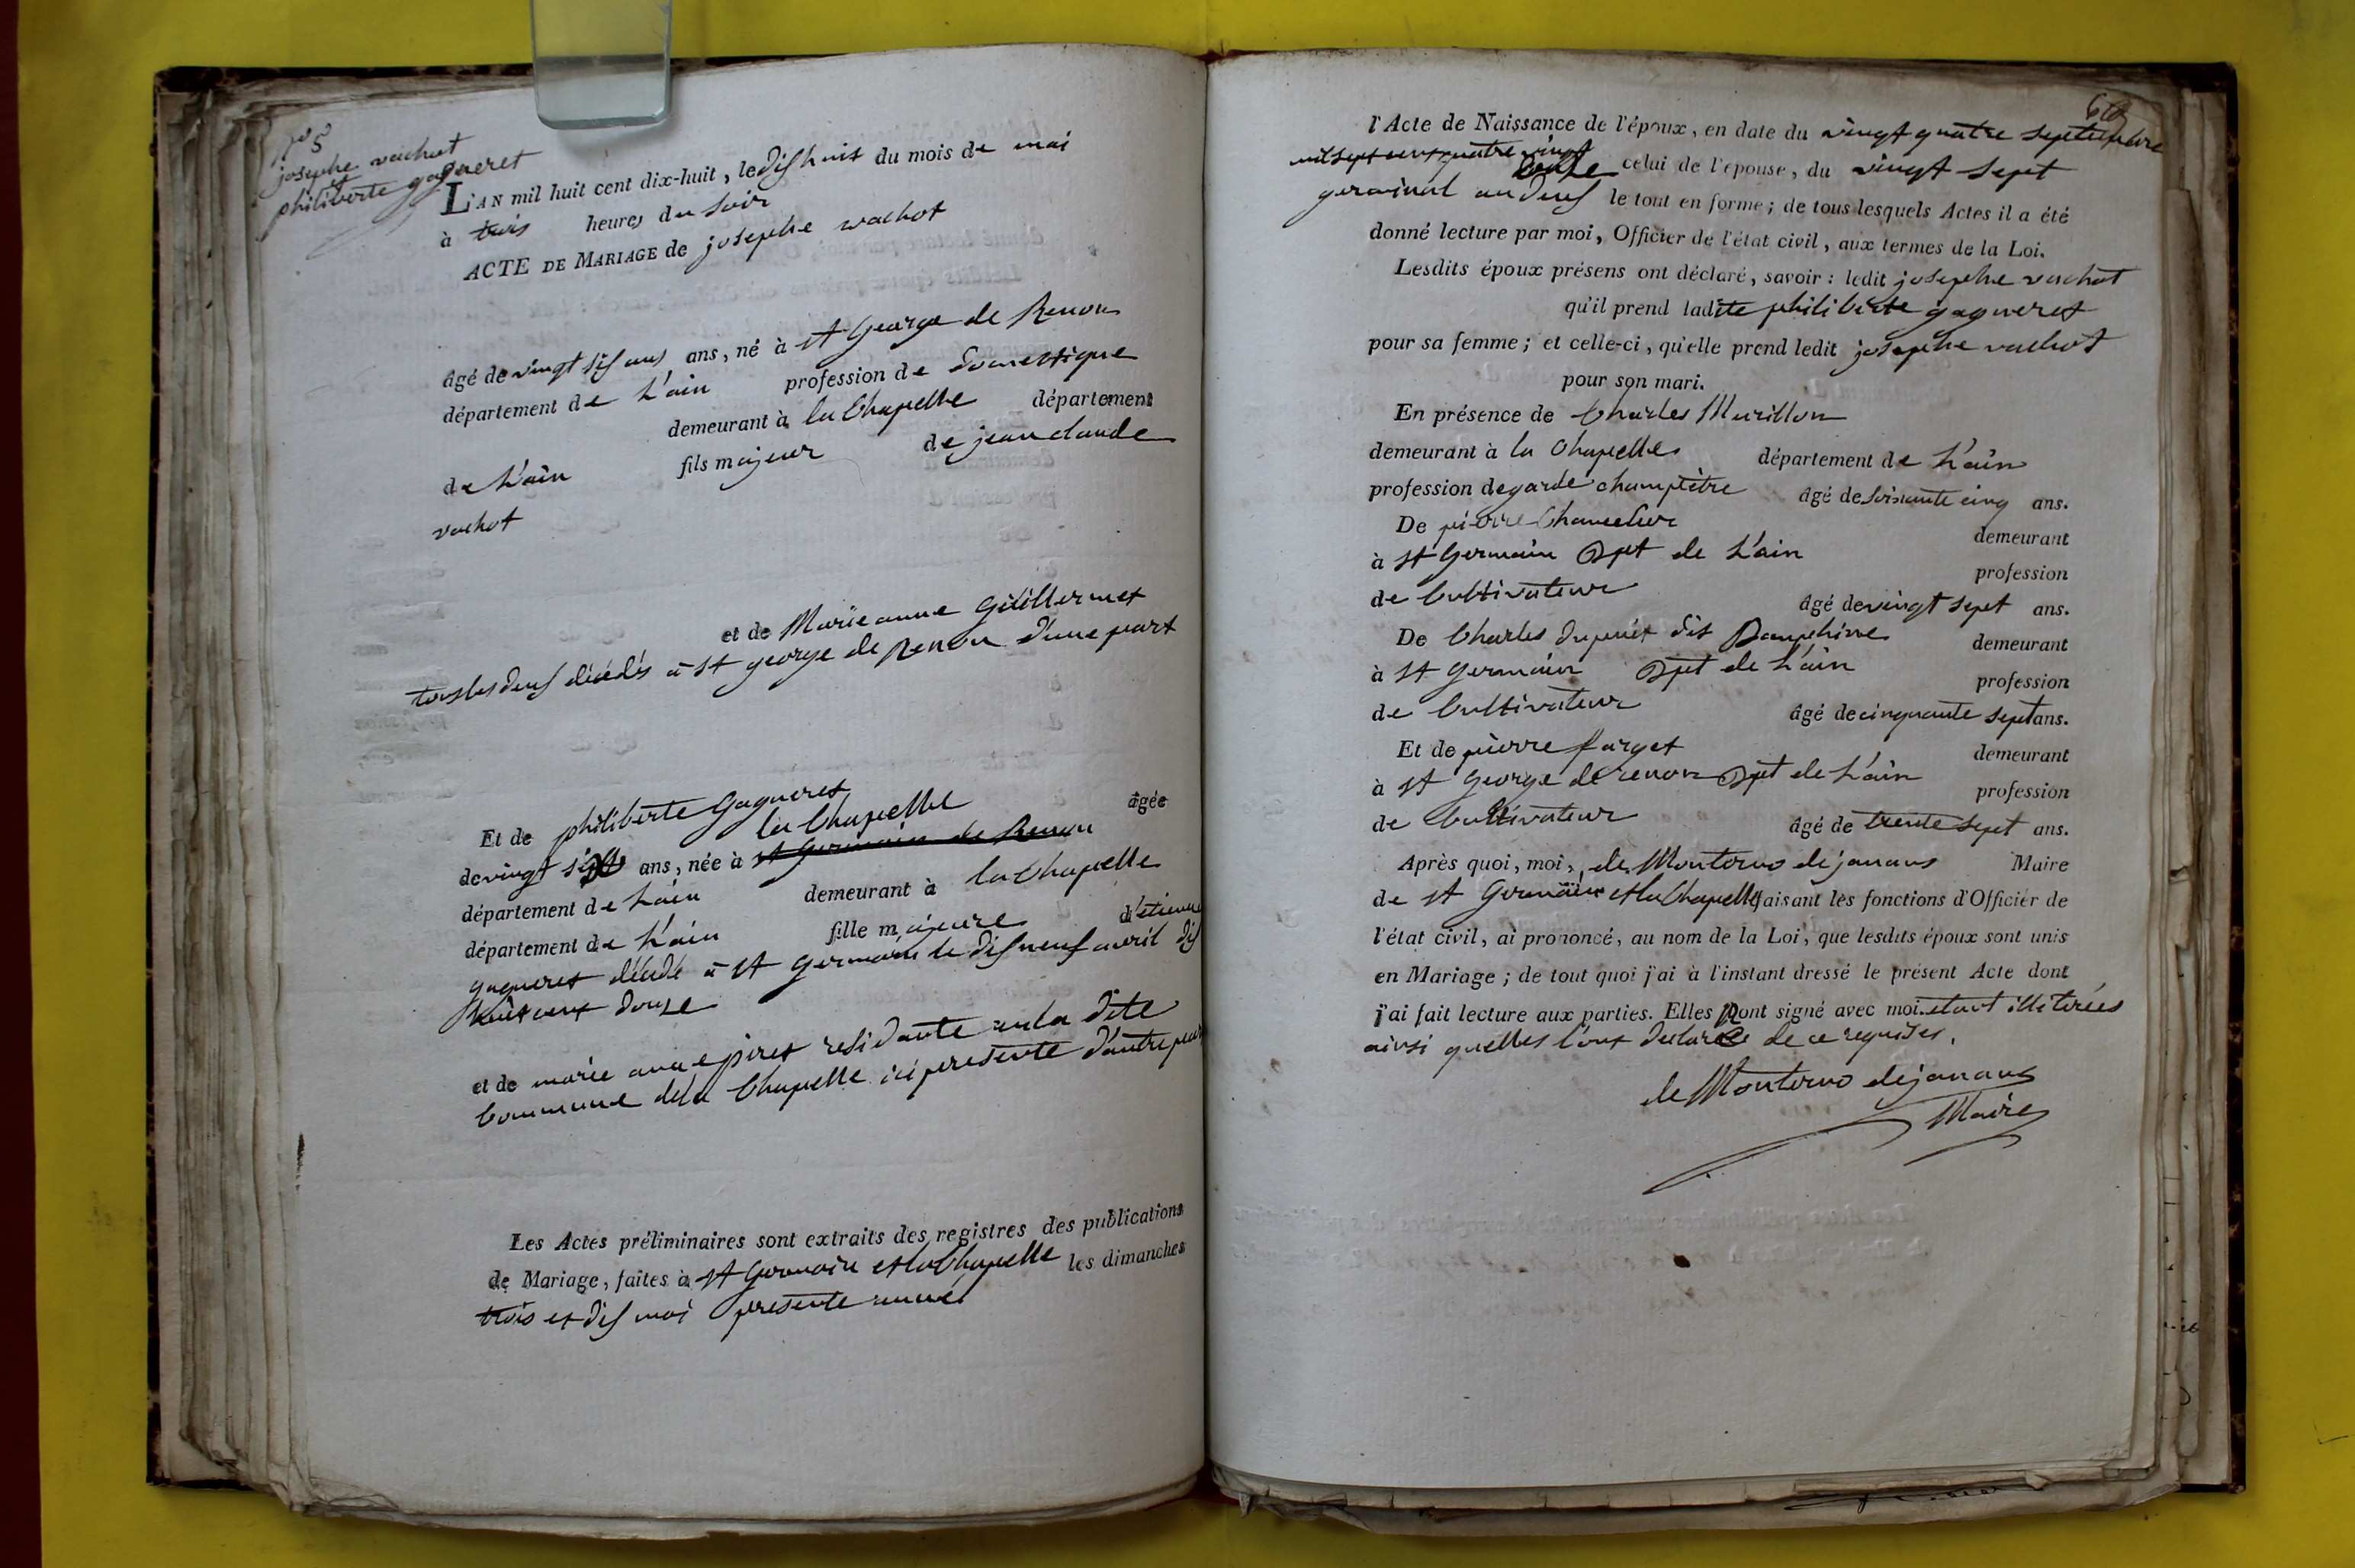 n° 5
josephe vachot
et
philiberte gagneret
L'AN mil huit cent dix-huit, le dishuit du mois de mai
à trois heures du soir
ACTE DE MARIAGE de josephe vachot
âgé de vingt sis ans ans, né à st George de Renon
département de L'ain profession de domestique
demeurant à la Chapelle département
de L'ain fils majeur de jean claude
vachot
et de Marie anne Guillermet
tous les deus décédés à st george de Renon d'une part
Et de philiberte Gagneret âgée
la Chapelle
de vingt ans, née à st Germain de Renon
département de L'ain demeurant à la Chapelle
département de L'ain fille majeure d'etienne
gagneret décédé à st Germain le dis neuf avril dis
huit cent douze
et de marie anne piret residante en la dite
Commune de la Chapelle ici presente d'autre part
Les Actes préliminaires sont extraits des registres des publications
de Mariage, faites à st Germain et la Chapelle les dimanches
trois et dis mai presente année
l'Acte de Naissance de l'époux, en date du vingt quatre septembre
mil sept cent quatre vingt
onze celui de l'épouse, du vingt sept
germinal an deus le tout en forme; de tous lesquels Actes il a été
donné lecture par moi, Officier de l'état civil, aux termes de la Loi.
Lesdits époux présens ont déclaré, savoir: ledit josephe vachot
qu'il prend ladite philiberte gagneret
pour sa femme; et celle-ci, qu'elle prend ledit josephe vachot
pour son mari.
En présence de Charles Murillon
demeurant à la Chapelle département de L'ain
profession de garde champètre âgé de soisante cinq ans.
De pierre Chanelier
demeurant
à st Germain Dpt de L'ain
profession
de Cultivateur âgé de vingt sept ans.
De Charles dupuit dit Dauphine demeurant
à st Germain Dpt de L'ain
profession
de Cultivateur âgé de cinquante sept ans.
Et de pierre farget demeurant
à st George de renon Dpt de L'ain
profession
de Cultivateur âgé de trente sept ans.
Après quoi, moi, de Monterno dejanans Maire
de st Germain et la Chapelle faisant les fonctions d'Officier de
l'état civil, ai prononcé, au nom de la Loi, que lesdits époux sont unis
en Mariage; de tout quoi j'ai à l'instant dressé le présent Acte dont
j'ai fait lecture aux parties. Elles n'ont signé avec moi étant illitérées
ainsi quelles l'ont declaré de ce requises.
de Monterno dejanans
Maire